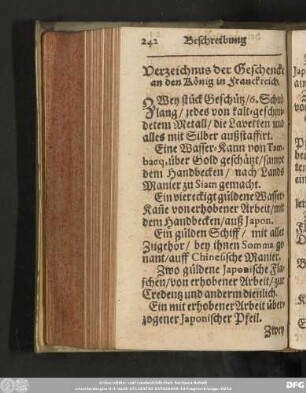 242 Beschreibung
Verzeichnus der Geschenck
an den König in Franckreich.
ZWey stück Geschütz/6. Schuh
lang/ jedes von kalt-geschmi-
detem Metall/ die Lavetten und
alles mit Silber außstaffirt.
Eine Wasser-Kann von Tam-
bacq, über Gold geschätzt/ sampt
dem Handbecken/ nach Lands
Manier zu Siam gemacht.
Ein viereckigt güldene Wasser-
Kañe von erhobener Arbeit/ mit
dem Handbecken/ auß Japon.
Ein gülden Schiff/ mit aller
Zugehör/ bey ihnen Somma ge-
nant/ auff Chinesische Manier.
Zwo güldene Japonische Fla-
schen/ von erhobener Arbeit/ zur
Credentz und anderm dienlich.
Ein mit erhobener Arbeit über-
zogener Japonischer Pfeil.
Zwey
DFG